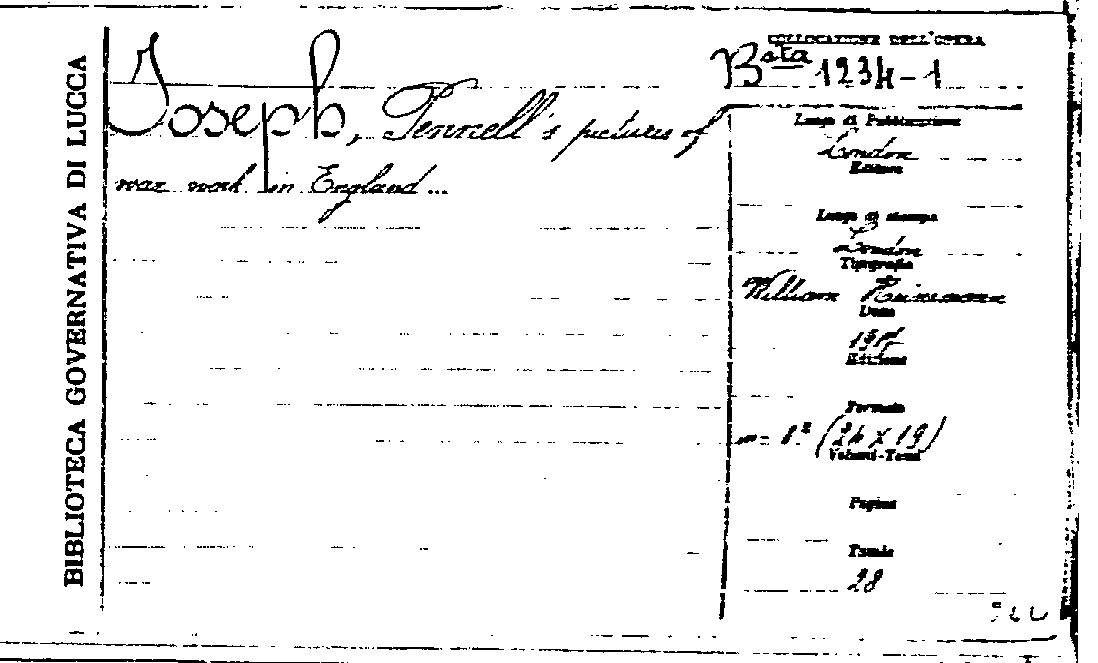 BIBLIOTECA GOVERNATIVA DI LUCCA
Joseph, Pennell's pictures of
war work in England...
COLLOCAZIONE DELL'OPERA
Bsta 1234-1
Luogo di Pubblicazione
London
Editore
Luogo di stampa
London
Tipografia
William Heinemann
Data
Edizione
Formato
in- 8º (24 x 19)
Volumi-Tomi
Pagine
Tavole
28